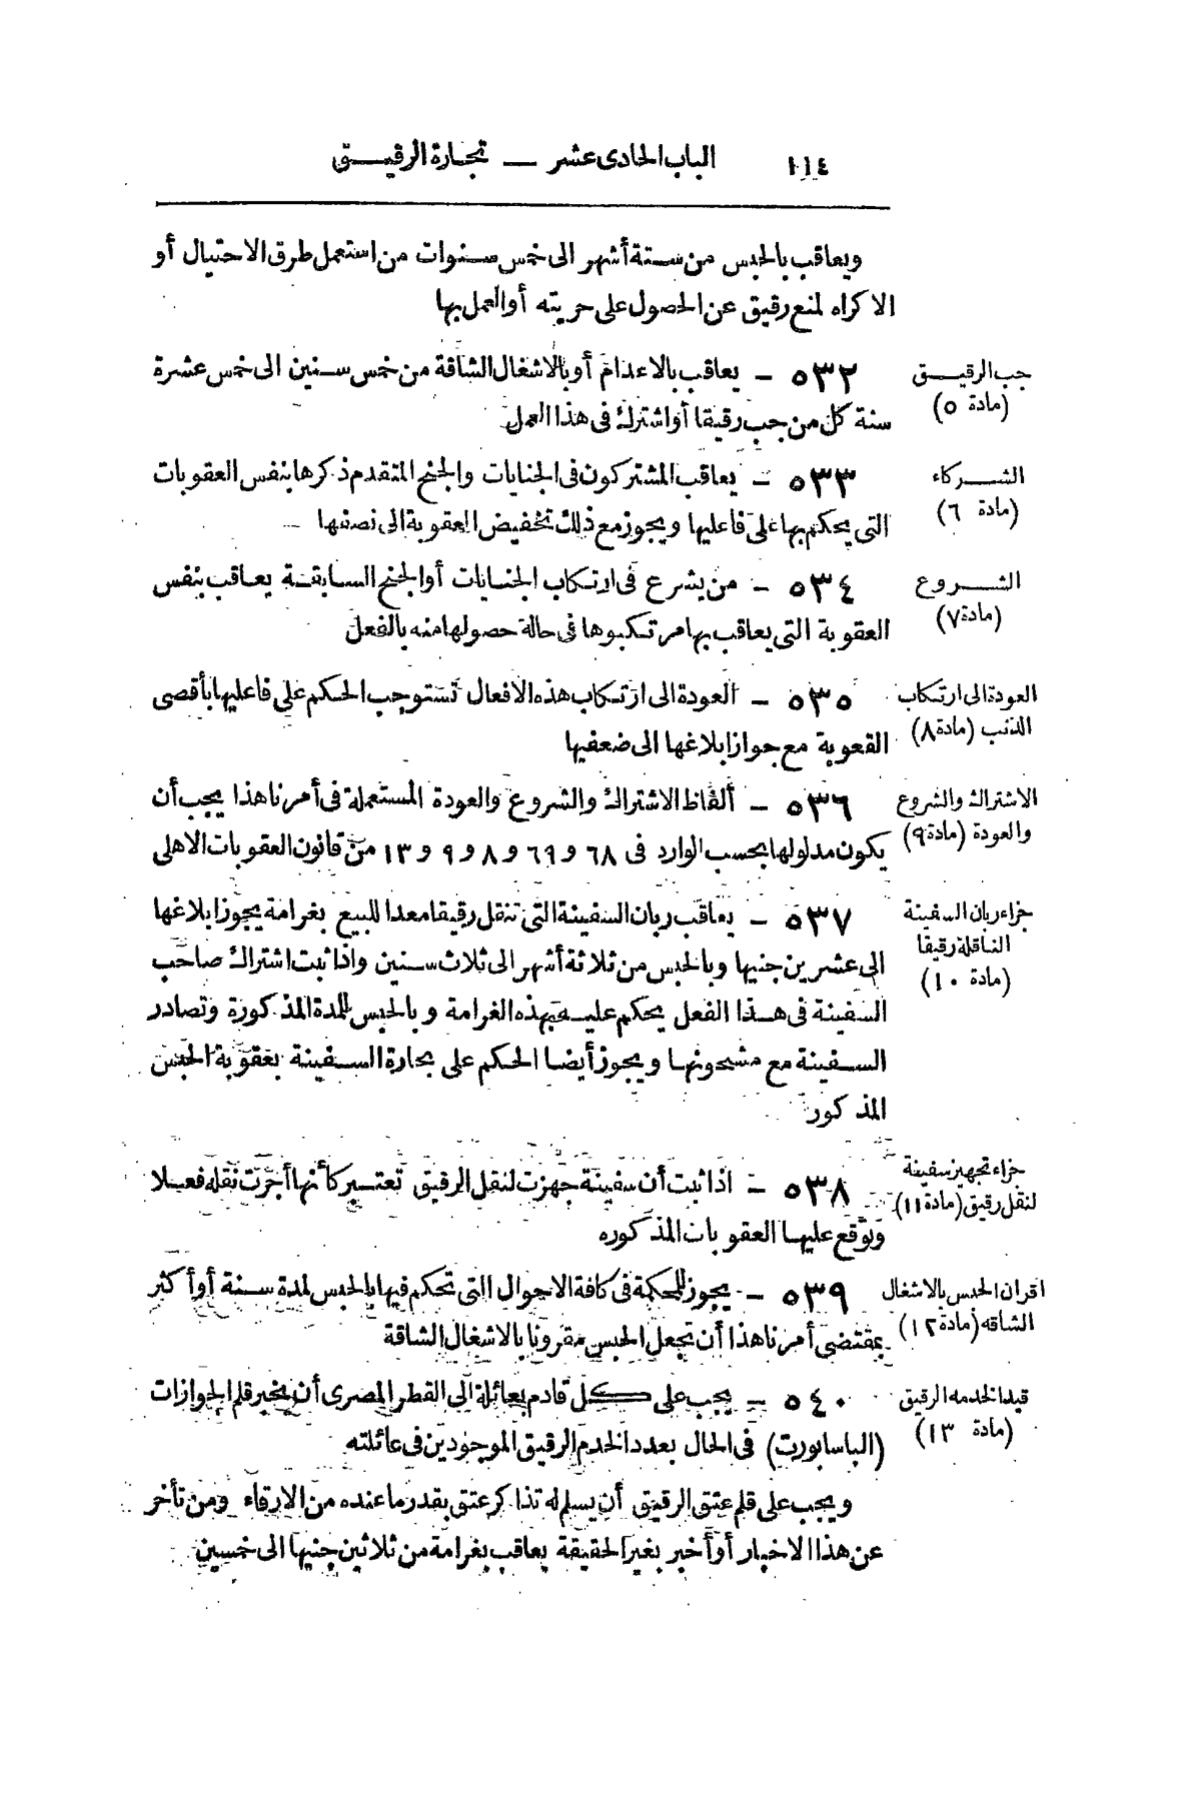 ١١٤ الباب الحادى عشر — تجارة الرقيق
ويعاقب بالحبس من ستة أشهر الى خمس سنوات من استعمل طرق الاحتيال أو
الاكراه لمنع رقيق عن الحصول على حريته أو العمل بها
جب الرقيق
(مادة ٥)
٥٣٢ — يعاقب بالاعدام أو بالاشغال الشاقة من خمس سنين الى خمس عشرة
سنة كل من جب رقيقا أو اشترك فى هذا العمل
الشركاء
(مادة ٦)
٥٣٣ — يعاقب المشتركون فى الجنايات والجنح المتقدم ذكرها بنفس العقوبات
التى يحكم بها على فاعليها ويجوز مع ذلك تخفيض العقوبة الى نصفها
الشروع
(مادة ٧)
٥٣٤ — من يشرع فى ارتكاب الجنايات أو الجنح السابقة يعاقب بنفس
العقوبة التى يعاقب بها مرتكبوها فى حالة حصولها منه بالفعل
العودة الى ارتكاب
الذنب (مادة ٨)
٥٣٥ — العودة الى ارتكاب هذه الافعال تستوجب الحكم على فاعليها بأقصى
القعوبة مع جواز ابلاغها الى ضعفيها
الاشتراك والشروع
والعودة (مادة ٩)
٥٣٦ — ألفاظ الاشتراك والشروع والعودة المستعملة فى أمرنا هذا يجب أن
يكون مدلولها بحسب الوارد فى ٦٨ و ٦٩ و ٨ و ٩ و ١٣ من قانون العقوبات الاهلى
جزاء ربان السفينة
الناقلة رقيقا
(مادة ١٠)
٥٣٧ — يعاقب ربان السفينة التى تنقل رقيقا معدا للبيع بغرامة يجوز ابلاغها
الى عشرين جنيها وبالحبس من ثلاثة أشهر الى ثلاث سنين واذا ثبت اشتراك صاحب
السفينة فى هذا الفعل يحكم عليه بهذه الغرامة وبالحبس للمدة المذكورة وتصادر
السفينة مع مشحونها ويجوز أيضا الحكم على بحارة السفينة بعقوبة الحبس
المذكور
جزاء تجهيز سفينة
لنقل رقيق (مادة ١١)
٥٣٨ — اذا ثبت أن سفينة جهزت لنقل الرقيق تعتبر كأنها أجرت نقله فعلا
وتوقع عليها العقوبات المذكوره
اقران الحبس بالاشغال
الشاقه (مادة ١٢)
٥٣٩ — يجوز للمحكمة فى كافة الاحوال التى تحكم فيها بالحبس لمدة سنة أو أكثر
بمقتضى أمرنا هذا أن تجعل الحبس مقرونا بالاشغال الشاقة
قيد الخدمه الرقيق
(مادة ١٣)
٥٤٠ — يجب على كل قادم بعائلة الى القطر المصرى أن يخبر قلم الجوازات
(الباسابورت) فى الحال بعدد الخدم الرقيق الموجودين فى عائلته
ويجب على قلم عتق الرقيق أن يسلم له تذاكر عتق بقدر ما عنده من الارقاء ومن تأخر
عن هذا الاخبار أو أخبر بغير الحقيقة يعاقب بغرامة من ثلاثين جنيها الى خمسين